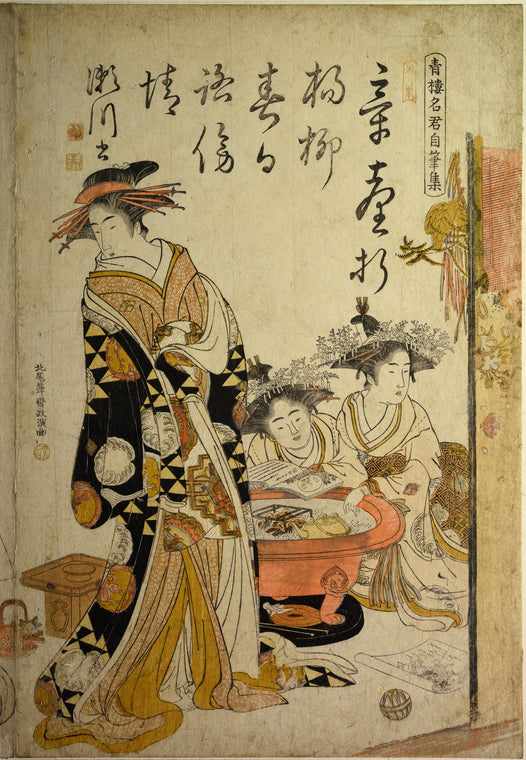 青樓名君自筆集
章臺折
楊柳
春日
路傍
情
瀬川書
北尾葎齋政演画